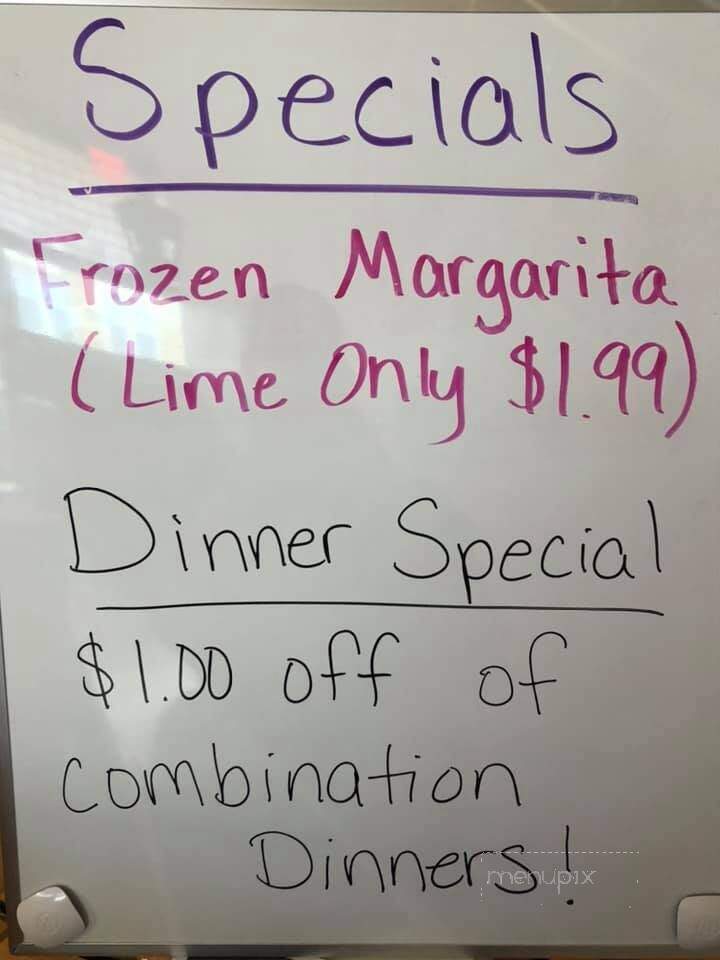 Specials
Frozen Margarita
(Lime Only $1.99)
Dinner Special
$1.00 off of
combination
Dinners!
menupix